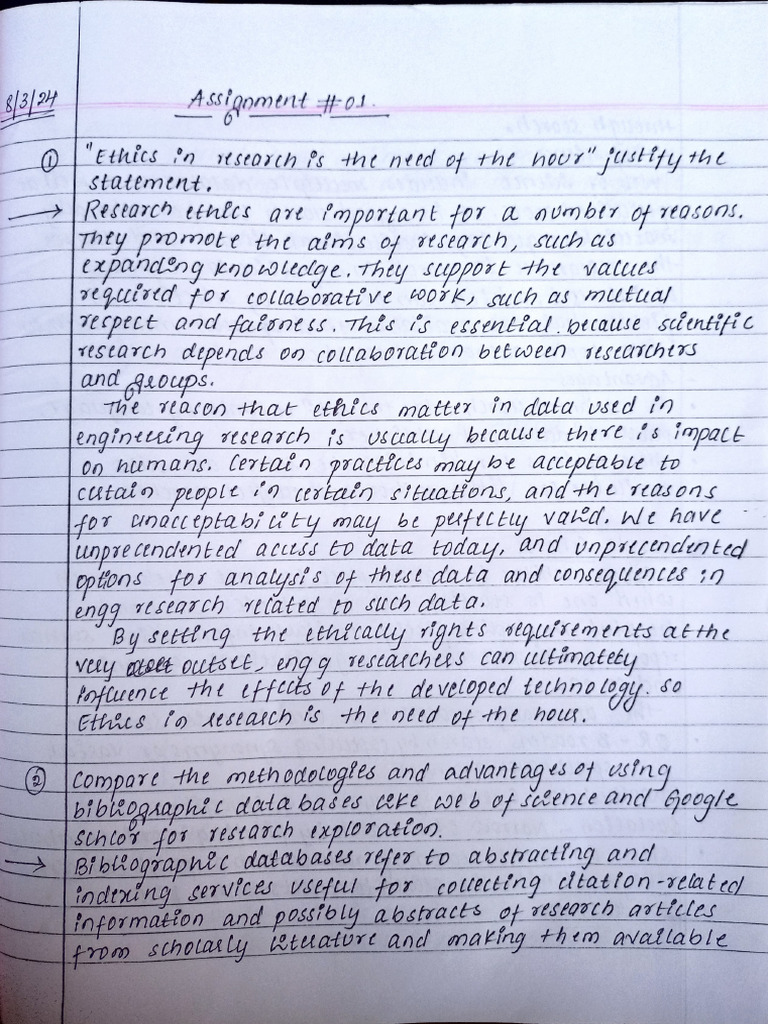 8/3/24
Assignment #01.
① "Ethics in research is the need of the hour" justify the
statement.
→ Research ethics are important for a number of reasons.
They promote the aims of research, such as
expanding knowledge. They support the values
required for collaborative work, such as mutual
respect and fairness. This is essential because scientific
research depends on collaboration between researchers
and groups.
The reason that ethics matter in data used in
engineering research is usually because there is impact
on humans. Certain practices may be acceptable to
certain people in certain situations, and the reasons
for unacceptability may be perfectly valid. We have
unprecendented access to data today, and unprecendented
options for analysis of these data and consequences in
engg research related to such data.
By setting the ethically rights requirements at the
very outset, engg researchers can ultimately
influence the effects of the developed technology. so
Ethics in research is the need of the hour.
② Compare the methodologies and advantages of using
bibliographic databases like web of science and Google
schlor for research exploration.
→ Bibliographic databases refer to abstracting and
indexing services useful for collecting citation-related
information and possibly abstracts of research articles
from scholarly literature and making them available